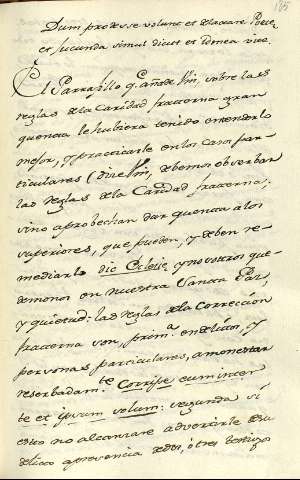 185
Dum prodesse volunt et delectare Poetæ
et jucunda simul dicut et idonea vitæ.
El Parrafillo q. añade Vm, sobre las
reglas de la Caridad fraterna gran
quenta le hubiera tenido entenderlo
mejor, y practicarle en los casos par-
ticulares (dire Vm, debemos observar
las Reglas de la Caridad fraterna,
sino aprobechan dar quenta à los
superiores, que pueden, y deben re-
mediarlo dic Eclesie y nosotros que-
demonos en nuestra Santa Paz,
y quietud: las reglas de la Correccion
fraterna son, prim.ª en delitos, y
personas particulares, amonestar
reserbadam.te Corripe eum inter
te et ipsum solum: segunda si
esto no alcanzare advertirle de su
delito apresencia de dos, ò tres testigos